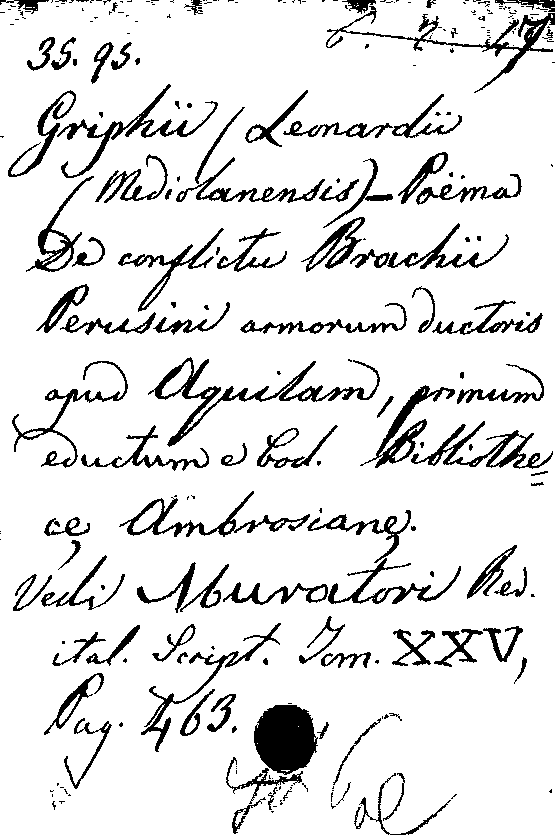 6. 2. 47
35. 95.
Griphii (Leonardii
(Mediolanensis) – Poëma
De conflictu Brachii
Perusini armorum ductoris
apud Aquilam, primum
eductum e Cod. Bibliothe=
cę Ambrosianę.
Vedi Muratori Rer.
ital. Script. Tom. XXV,
Pag. 463.